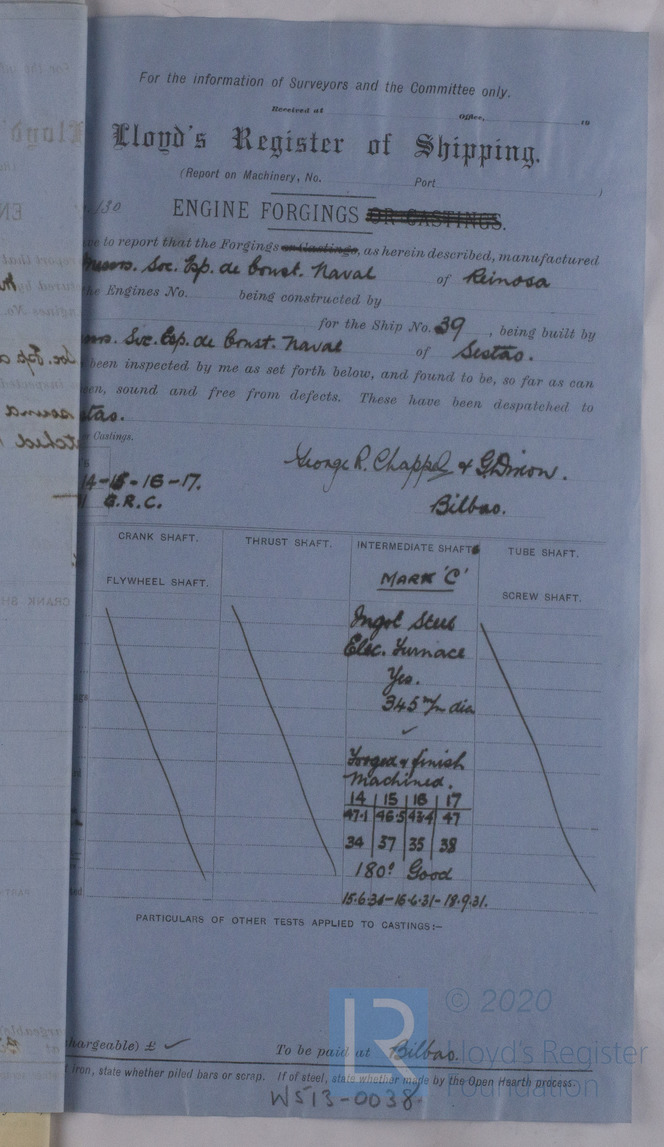 For the information of Surveyors and the Committee only.
Received at Office, 19
Lloyd's Register of Shipping.
(Report on Machinery, No. Port )
130
ENGINE FORGINGS OR CASTINGS.
to report that the Forgings or Castings, as herein described, manufactured
Messrs. Soc. Esp. de Const. Naval of Reinosa
the Engines No. being constructed by
for the Ship No. 39, being built by
Soc. Esp. de Const. Naval of Sestao.
been inspected by me as set forth below, and found to be, so far as can
seen, sound and free from defects. These have been despatched to
Castings.
George R. Chappel & G. Dixon.
14-15-16-17.
G.R.C.
Bilbao.
CRANK SHAFT. THRUST SHAFT. INTERMEDIATE SHAFTS TUBE SHAFT.
FLYWHEEL SHAFT. MARK 'C' SCREW SHAFT.
Ingot Steel
Elec. Furnace
Yes.
345 m/m dia
Forged & finish
Machined.
14 15 16 17
47.1 46.5 43.4 47
34 37 35 38
180° Good
15.6.31-16.6.31-18.9.31.
PARTICULARS OF OTHER TESTS APPLIED TO CASTINGS:-
chargeable) £ To be paid at Bilbao.
iron, state whether piled bars or scrap. If of steel, state whether made by the Open Hearth process.
W513-0038
© 2020
Lloyd's Register
Foundation